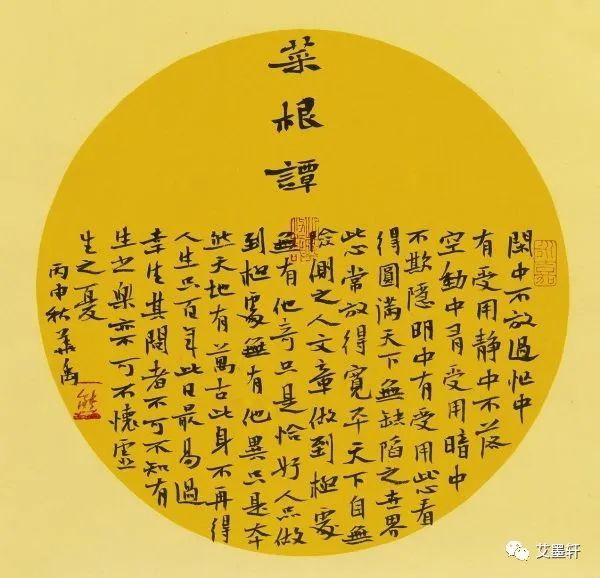 菜根譚
閑中不放過忙中
有受用静中不落
空動中有受用暗中
不欺隱明中有受用此心看
得圓滿天下無缺陷之世界
此心常放得寬平天下自無
險側之人文章做到極處
無有他奇只是恰好人品做
到極處無有他異只是本
然天地有萬古此身不再得
人生只百年此日最易過
幸生其間者不可不知有
生之樂亦不可不懷虛
生之憂
丙申秋
艾墨轩